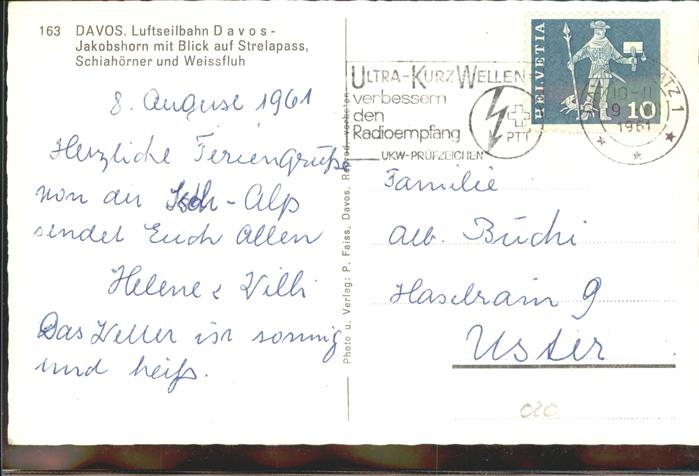 163 DAVOS. Luftseilbahn Davos-
Jakobshorn mit Blick auf Strelapass,
Schiahörner und Weissfluh
8. August 1961
Herzliche Feriengrüsse
von der -Alp
sendet Euch Allen
Helene & Willi
Das Wetter ist sonnig
und heiss.
Photo u. Verlag: P. Faiss, Davos, Reprod. verboten
ULTRA-KURZ WELLEN
verbessern
den
Radioempfang
PTT
UKW-PRÜFZEICHEN
HELVETIA
10
PLATZ 1
10-11
1961
Familie
Alb. Büchi
Haselrain 9
Uster
020